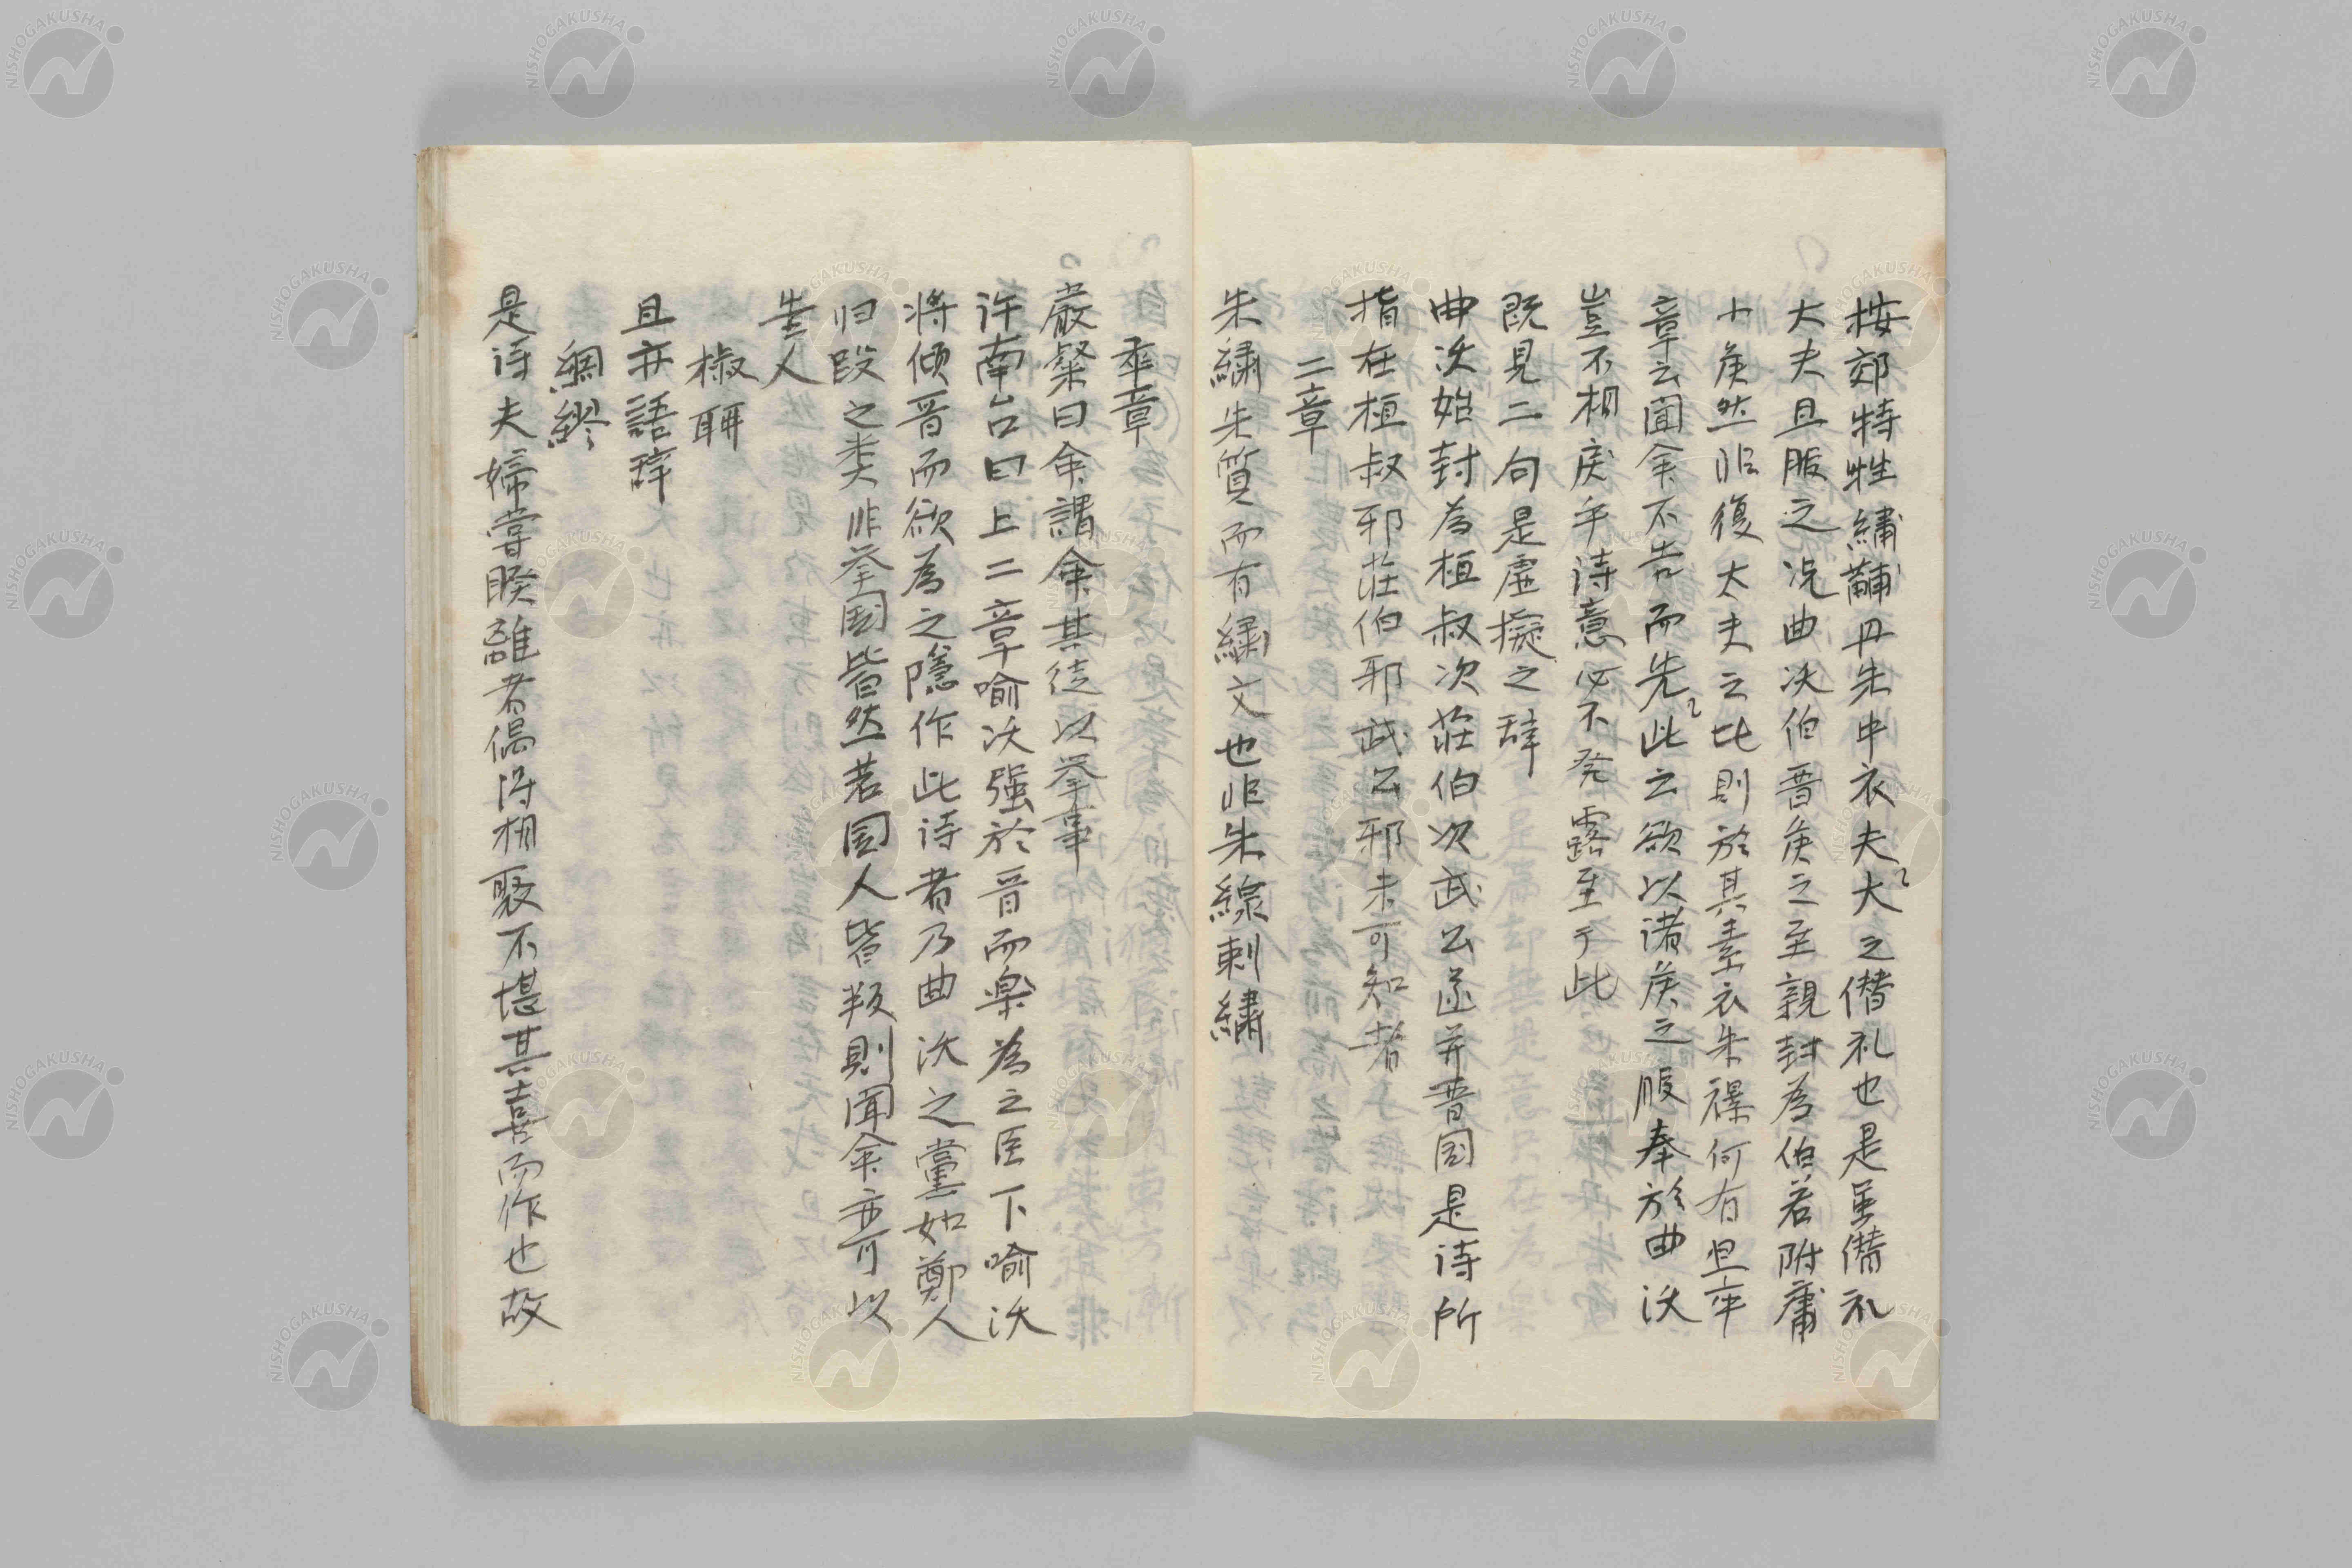 按郊特牲繡黼丹朱中衣夫大之僭礼也是虽僭礼
大夫且服之况曲沃伯晋侯之至親封為伯若附庸
小侯然非復大夫之比則於其素衣朱襮何有且卒
章云聞命不告而先此云欲以诸侯之服奉於曲沃
豈不相戾乎诗意必不発露至于此
既見二句是虚擬之辞
曲沃始封為桓叔次莊伯次武公遂并晋国是诗所
指在桓叔邪莊伯邪武公邪未可知者
二章
朱繡朱質而有繡文也非朱線刺繡
卒章
嚴粲曰命謂命其徒以举事
许南台曰上二章喻沃强於晋而樂為之臣下喻沃
将傾晋而欲為之隱作此诗者乃曲沃之黨如鄭人
归段之类非举国皆然若国人皆叛則聞命亦可以
告人
椒聊
且亦語辞
綢繆
是诗夫婦嘗睽離者偶得相聚不堪其喜而作也故
NISHOGAKUSHA